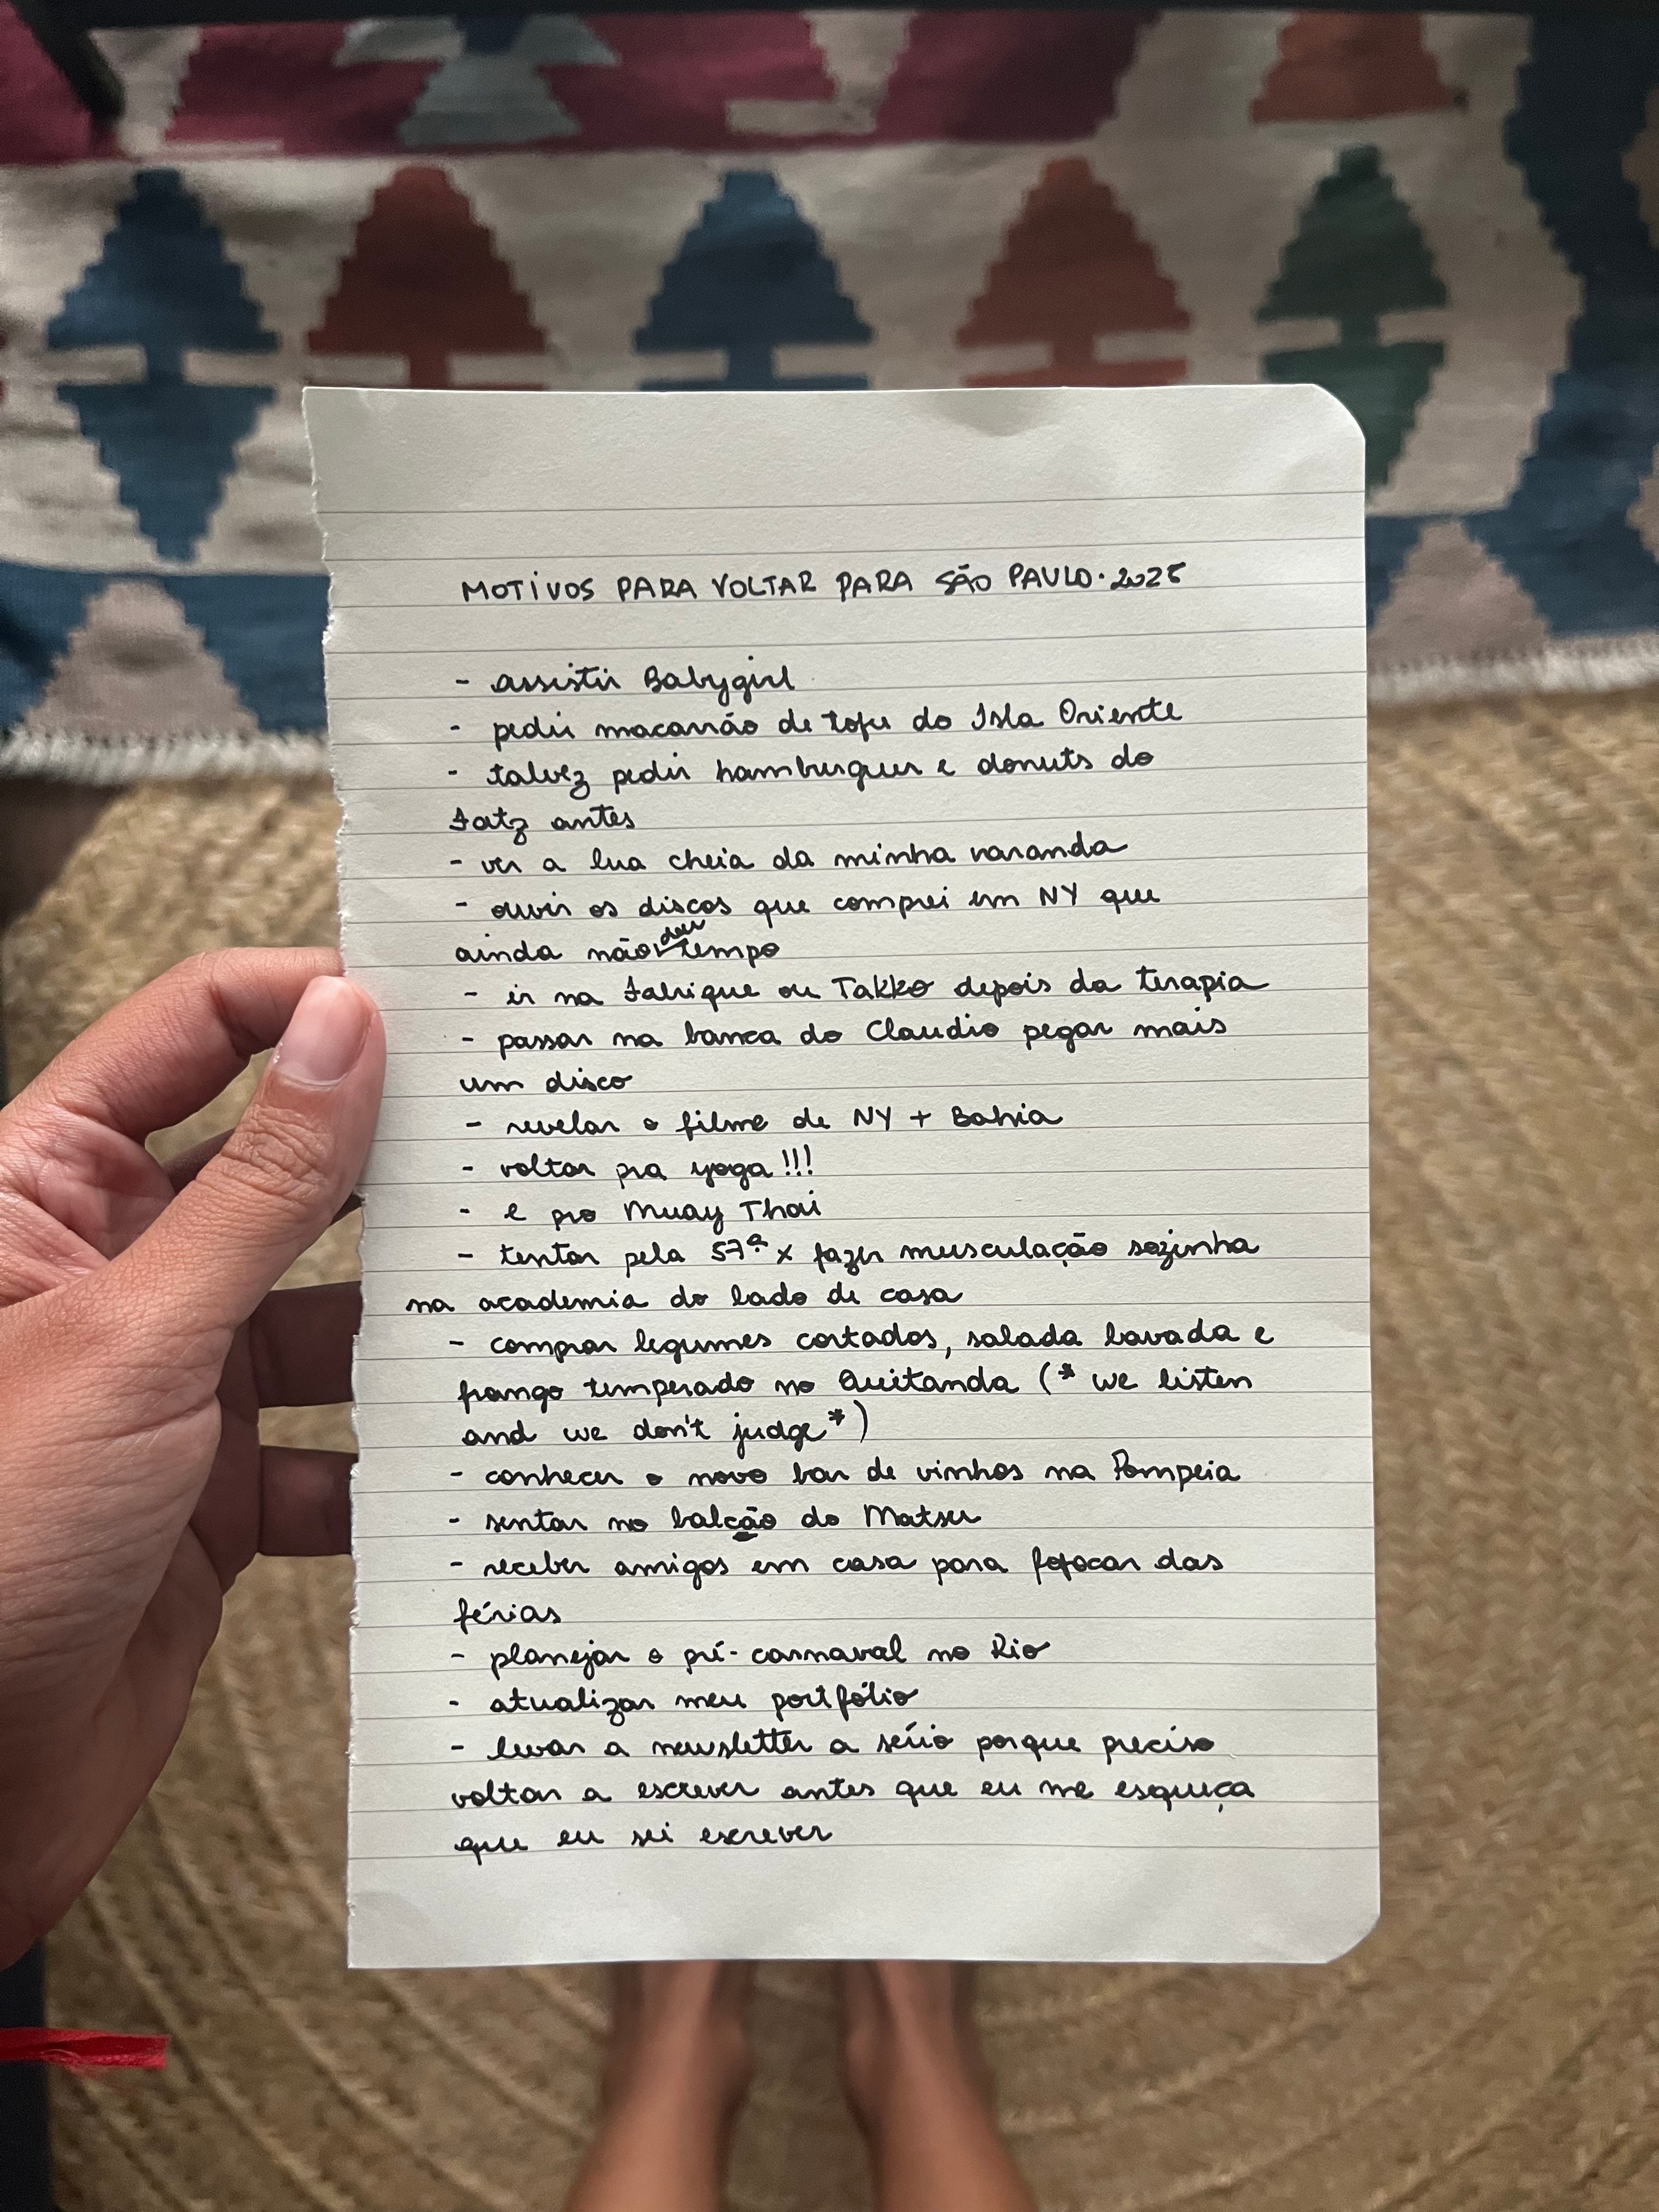 MOTIVOS PARA VOLTAR PARA SÃO PAULO · 2025
- assistir Babygirl
- pedir macarrão de tofu do Isla Oriente
- talvez pedir hamburguer e donuts do
Fatz antes
- ver a lua cheia da minha varanda
- ouvir os discos que comprei em NY que
ainda não deu tempo
- ir na Fabrique ou Takko depois da terapia
- passar na banca do Claudio pegar mais
um disco
- revelar o filme de NY + Bahia
- voltar pra yoga!!!
- e pro Muay Thai
- tentar pela 57ª x fazer musculação sozinha
na academia do lado de casa
- comprar legumes cortados, salada lavada e
frango temperado no Quitanda (* we listen
and we don't judge *)
- conhecer o novo bar de vinhos na Pompeia
- sentar no balcão do Matsu
- receber amigos em casa para fofocar das
férias
- planejar o pré-carnaval no Rio
- atualizar meu portfólio
- levar a newsletter a sério porque preciso
voltar a escrever antes que eu me esqueça
que eu sei escrever